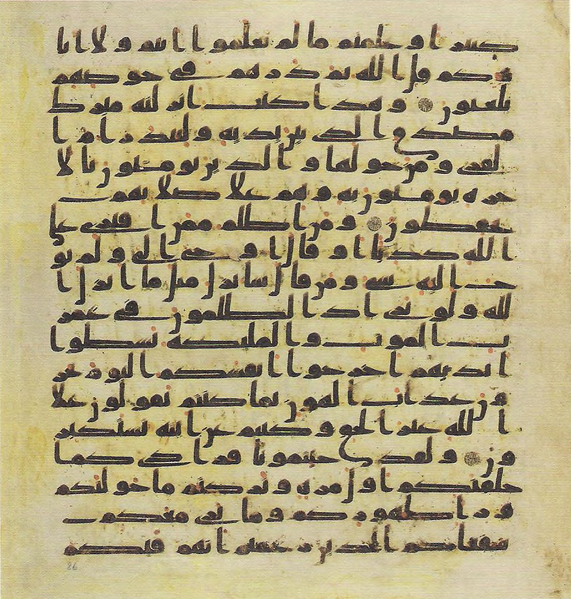 كثيرا وعلمتم ما لم تعلموا انتم ولا ابا
وكم قل الله ثم ذرهم في خوضهم
يلعبون وهذا كتب انزلنه مبرك
مصدق الذي بين يديه ولتنذر ام ا
لقرى ومن حولها والذين يومنون بالا
خرة يومنون به وهم على صلاتهم
يحفظون ومن اظلم ممن افترى على
الله كذبا او قال اوحي الي ولم يو
ح اليه شي ومن قال سانزل مثل ما انزل ا
لله ولو ترى اذ الظلمون في غمر
ت الموت والمليكة بسطوا
ايديهم اخرجوا انفسكم اليوم تجز
ون عذاب الهون بما كنتم تقولون على
الله غير الحق وكنتم عن ايته تستكبر
ون ولقد جيتمونا فردى كما
خلقنكم اول مرة وتركتم ما خولنكم
ورا ظهوركم وما نرى معكم
شفعاكم الذين زعمتم انهم فيكم
86